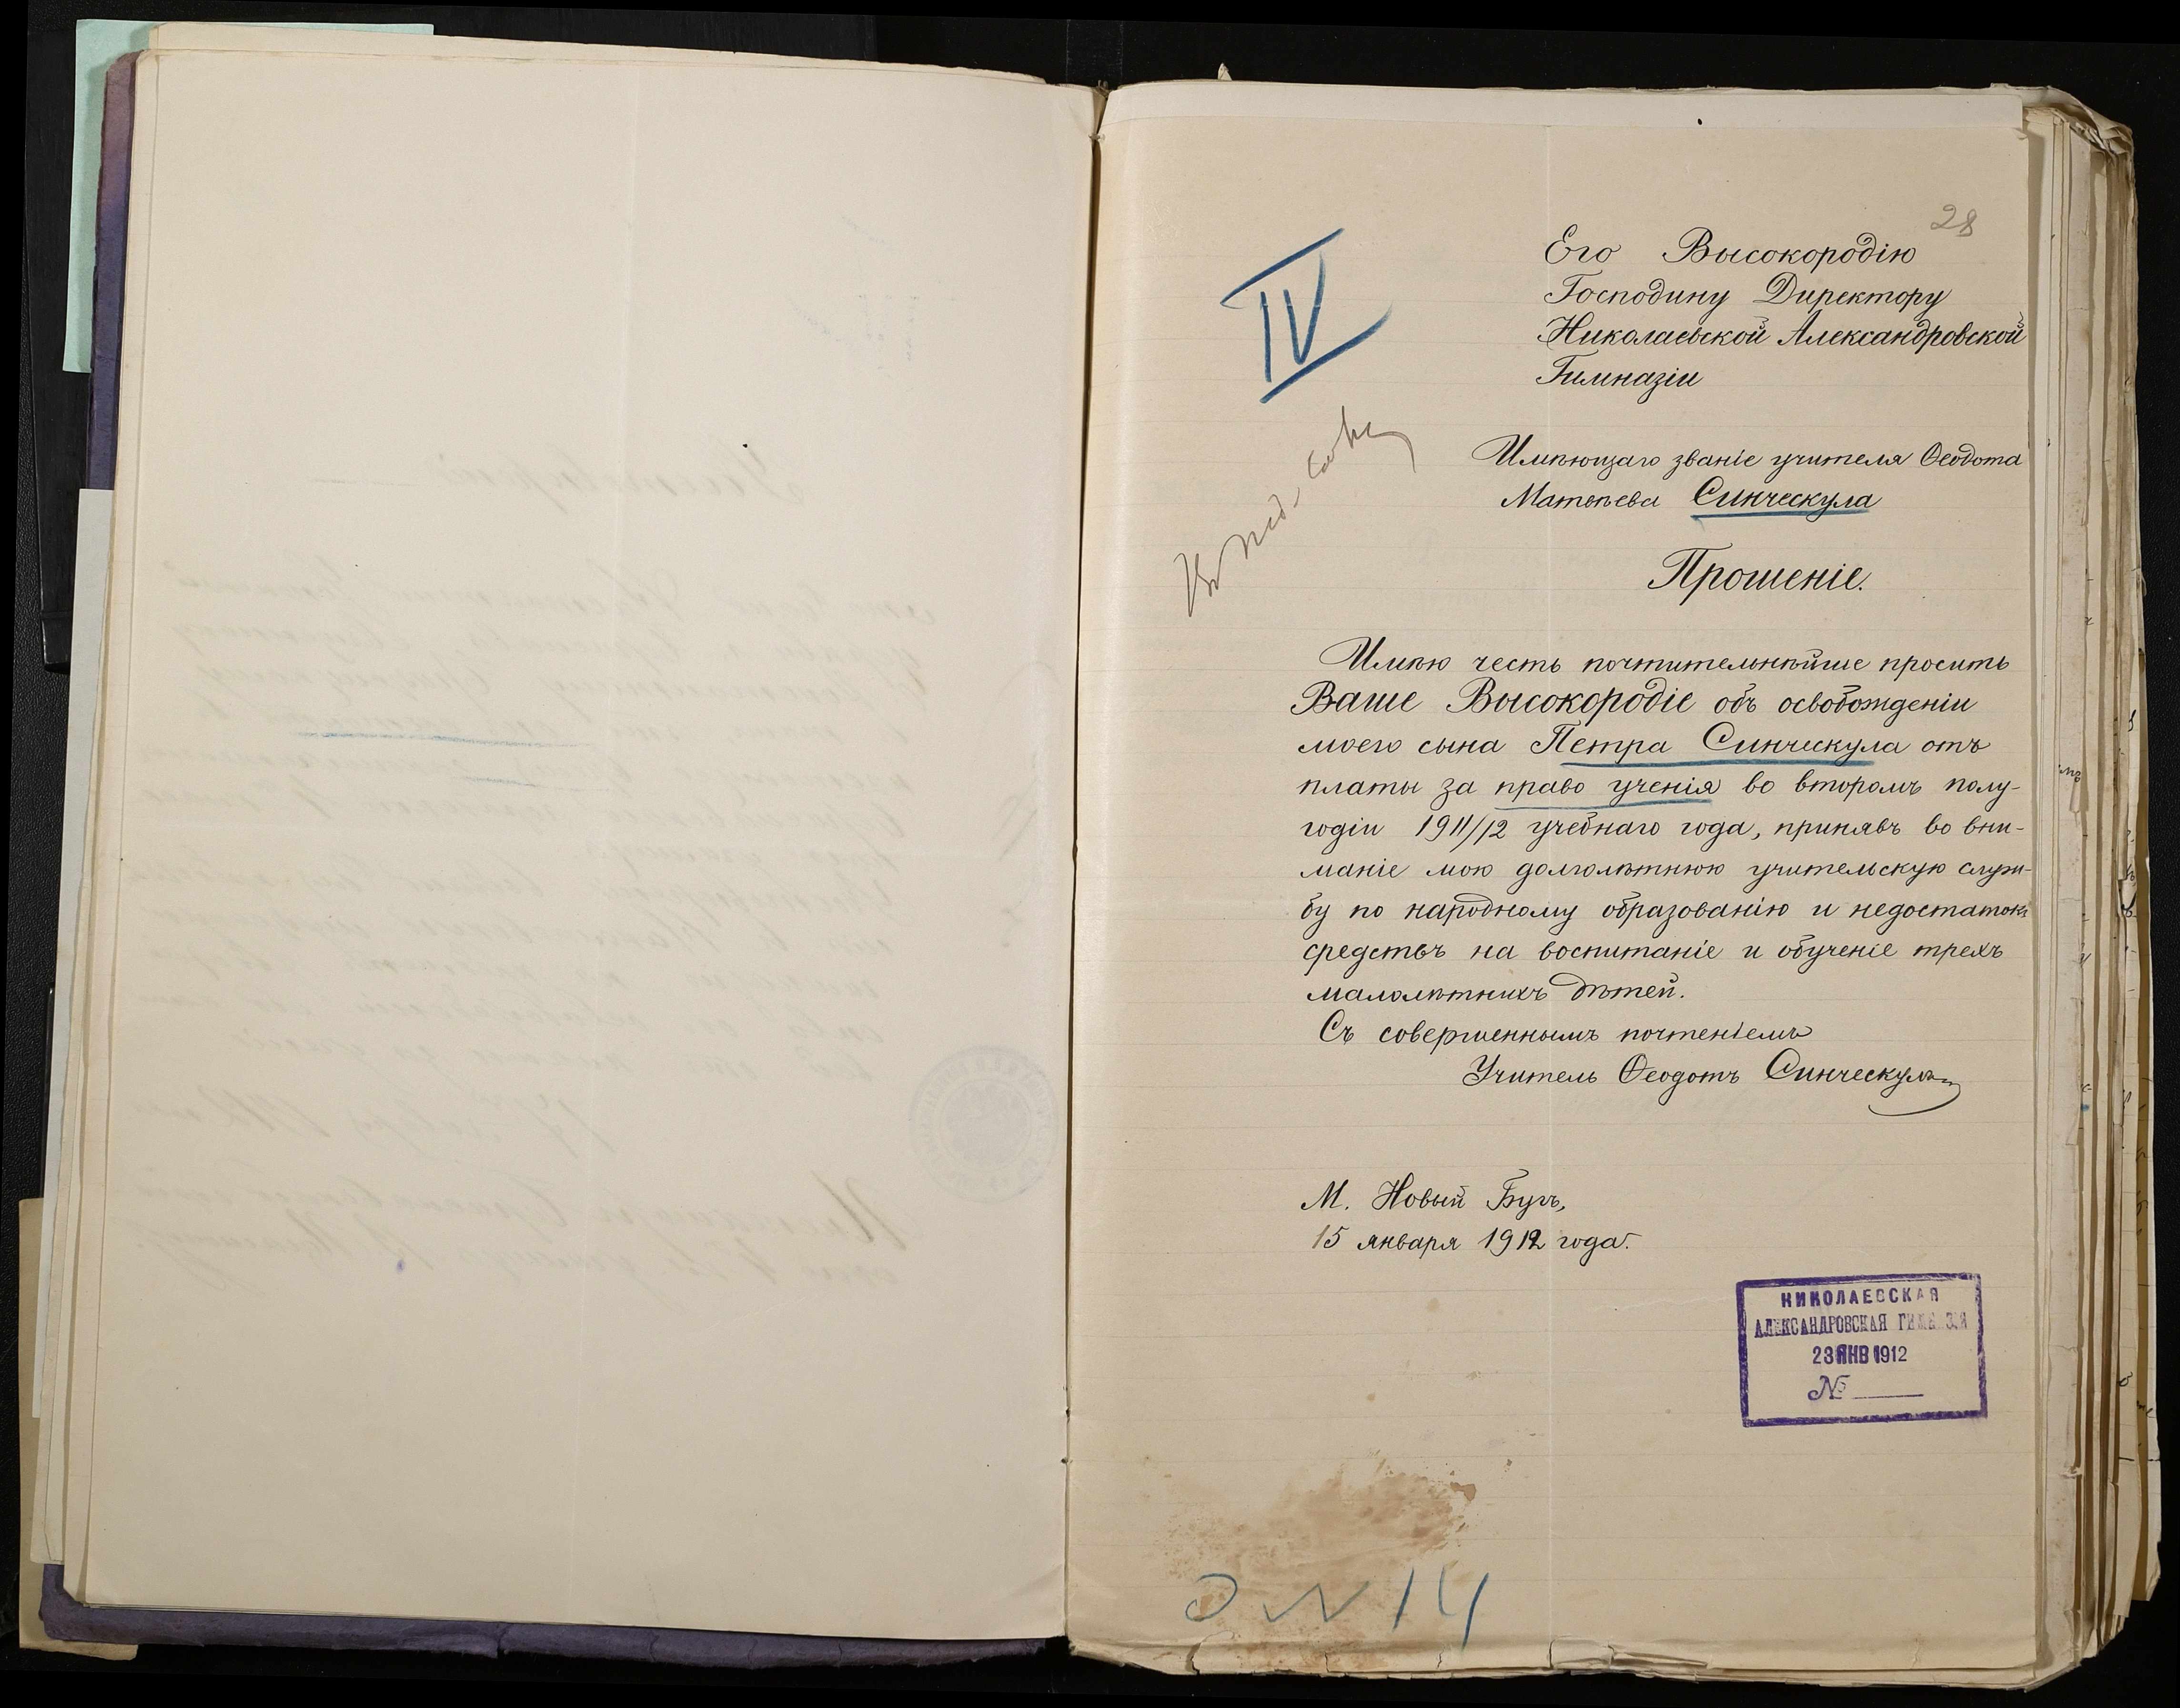 28
IV
Его Высокородію
Господину Директору
Николаевской Александровской
Гимназіи
Въ пед. совѣт
Имѣющаго званіе учителя Ѳеодота
Матвѣева Синческула
Прошеніе.
Имѣю честь почтительнѣйше просить
Ваше Высокородіе объ освобожденіи
моего сына Петра Синческула отъ
платы за право ученія во второмъ полу-
годіи 1911/12 учебнаго года, принявъ во вни-
маніе мою долголѣтнюю учительскую служ-
бу по народному образованію и недостатокъ
средствъ на воспитаніе и обученіе трехъ
малолѣтнихъ дѣтей.
Съ совершеннымъ почтеніемъ
Учитель Ѳеодотъ Синческулъ
М. Новый Бугъ,
15 января 1912 года.
НИКОЛАЕВСКАЯ
АЛЕКСАНДРОВСКАЯ ГИМНАЗІЯ
23 ЯНВ 1912
№
14